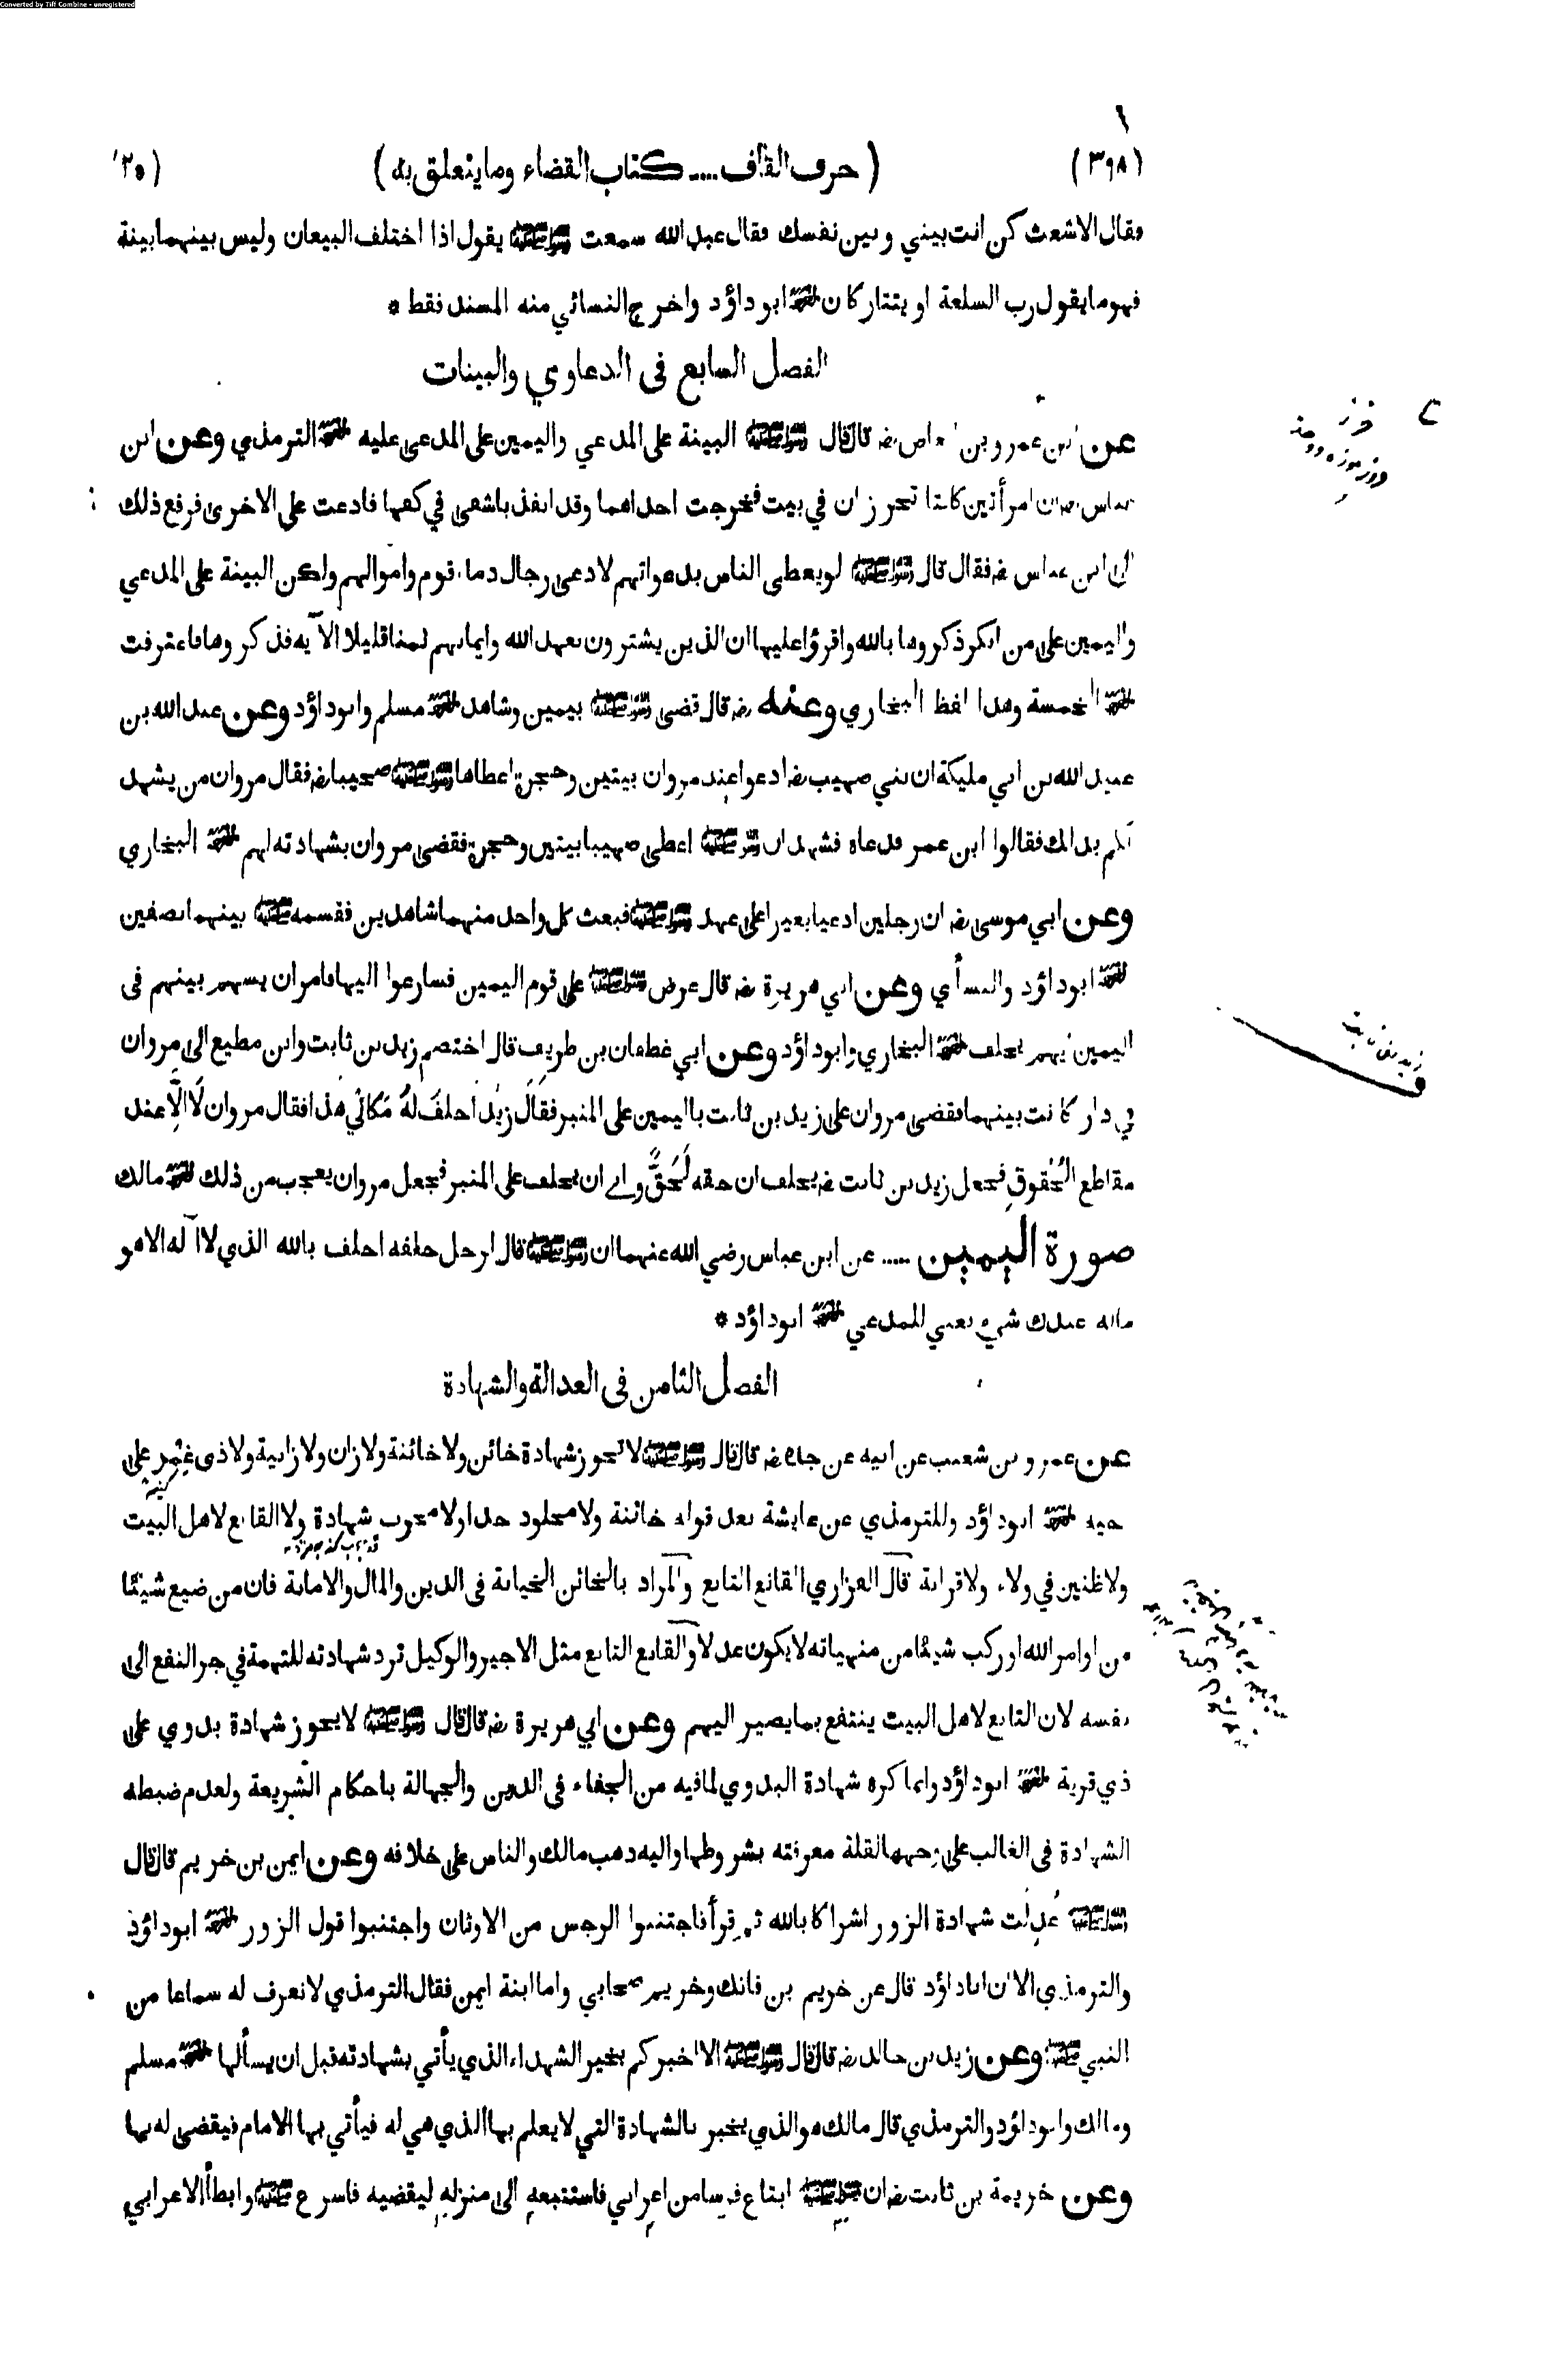 Converted by Tiff Combine - unregistered
(٣٩٨) (حرف القاف .... كتاب القضاء وما يتعلق به)
فقال الاشعث كن انت بيني وبين نفسك فقال عبد الله سمعت رسول الله ﷺ يقول اذا اختلف البيعان وليس بينهما بينة
فهو ما يقول رب السلعة او يتتاركان اخرجه ابو داؤد واخرج النسائي منه المسند فقط *
الفصل السابع فى الدعاوي والبينات
عن ابن عمرو بن العاص رضہ قال قال رسول الله ﷺ البينة على المدعي واليمين على المدعى عليه اخرجه الترمذي وعن ابن
عباس رضہ ان امرأتين كانتا تحرزان في بيت فخرجت احداهما وقد انفذ باشفى في كفها فادعت على الاخرى فرفع ذلك
الى ابن عباس رضہ فقال قال رسول الله ﷺ لو يعطى الناس بدعواتهم لادعى رجال دماء قوم واموالهم ولكن البينة على المدعي
واليمين على من انكر ذكروها بالله واقرؤا عليها ان الذين يشترون بعهد الله وايمانهم ثمنا قليلا الآيه فذكروها فاعترفت
اخرجه الخمسة وهذا لفظ البخاري وعنه رضہ قال قضى رسول الله ﷺ بيمين وشاهد اخرجه مسلم وابو داؤد وعن عبد الله بن
عبيد الله بن ابي مليكة ان بني صهيب رضہ ادعوا عند مروان بيتين وحجرة اعطاها رسول الله ﷺ صهيبا رضہ فقال مروان من يشهد
لكم بذالك فقالوا ابن عمر فدعاه فشهد ان رسول الله ﷺ اعطى صهيبا بيتين وحجرة فقضى مروان بشهادته لهم اخرجه البخاري
وعن ابي موسى رضہ ان رجلين ادعيا بعيرا على عهد رسول الله ﷺ فبعث كل واحد منهما شاهدين فقسمه ﷺ بينهما نصفين
اخرجه ابو داؤد والنسأي وعن ابي هريرة رضہ قال عرض رسول الله ﷺ على قوم اليمين فسارعوا اليها فامر ان يسهم بينهم فى
اليمين ايهم يحلف اخرجه البخاري وابو داؤد وعن ابي غطفان بن طريف قال اختصم زيد بن ثابت وابن مطيع الى مروان
في دار كانت بينهما فقضى مروان على زيد بن ثابت باليمين على المنبر فقال زيد احلف له مكاني هذا فقال مروان لا الا عند
مقاطع الحقوق فجعل زيد بن ثابت رضہ يحلف ان حقه لحق وابى ان يحلف على المنبر فجعل مروان يعجب من ذلك اخرجه مالك
صورة اليمين .... عن ابن عباس رضي الله عنهما ان رسول الله ﷺ قال لرجل حلفه احلف بالله الذي لا اله الا هو
ماله عندك شيء يعني للمدعي اخرجه ابو داؤد *
الفصل الثامن فى العدالة والشهادة
عن عمرو بن شعيب عن ابيه عن جده رضہ قال قال رسول الله ﷺ لا تجوز شهادة خائن ولا خائنة ولا زان ولا زانية ولا ذى غمر على
اخيه اخرجه ابو داؤد وللترمذي عن عايشة بعد قوله خائنة ولا مجلود حدا ولا مجرب شهادة ولا القانع لاهل البيت
ولا ظنين في ولاء ولا قرابة قال الفزاري القانع التابع والمراد بالخائن الخيانة فى الدين والمال والامانة فان من ضيع شيئا
من اوامر الله او ركب شيئا من منهياته لا يكون عدلا والقانع التابع مثل الاجير والوكيل ترد شهادته للتهمة في جر النفع الى
نفسه لان التابع لاهل البيت ينتفع بما يصير اليهم وعن ابي هريرة رضہ قال قال رسول الله ﷺ لا يجوز شهادة بدوي على
ذي قرية اخرجه ابو داؤد وانما كره شهادة البدوي لما فيه من الجفاء فى الدين والجهالة باحكام الشريعة ولعدم ضبطه
الشهادة فى الغالب على وجهها لقلة معرفته بشروطها واليه ذهب مالك والناس على خلافه وعن ايمن بن خريم قال قال
رسول الله ﷺ عدلت شهادة الزور اشراكا بالله ثم قرأ فاجتنبوا الرجس من الاوثان واجتنبوا قول الزور اخرجه ابو داؤد
والترمذي الا ان ابا داؤد قال عن خريم بن فاتك وخريم صحابي واما ابنة ايمن فقال الترمذي لا نعرف له سماعا من
النبي ﷺ وعن زيد بن خالد رضہ قال قال رسول الله ﷺ الا اخبركم بخير الشهداء الذي يأتي بشهادته قبل ان يسألها اخرجه مسلم
ومالك وابو داؤد والترمذي قال مالك هو الذي يخبر بالشهادة التي لا يعلم بها الذي هي له فيأتي بها الامام فيقضى له بها
وعن خزيمة بن ثابت رضہ ان رسول الله ﷺ ابتاع فرسا من اعرابي فاستتبعه الى منزله ليقضيه فاسرع ﷺ وابطأ الاعرابي